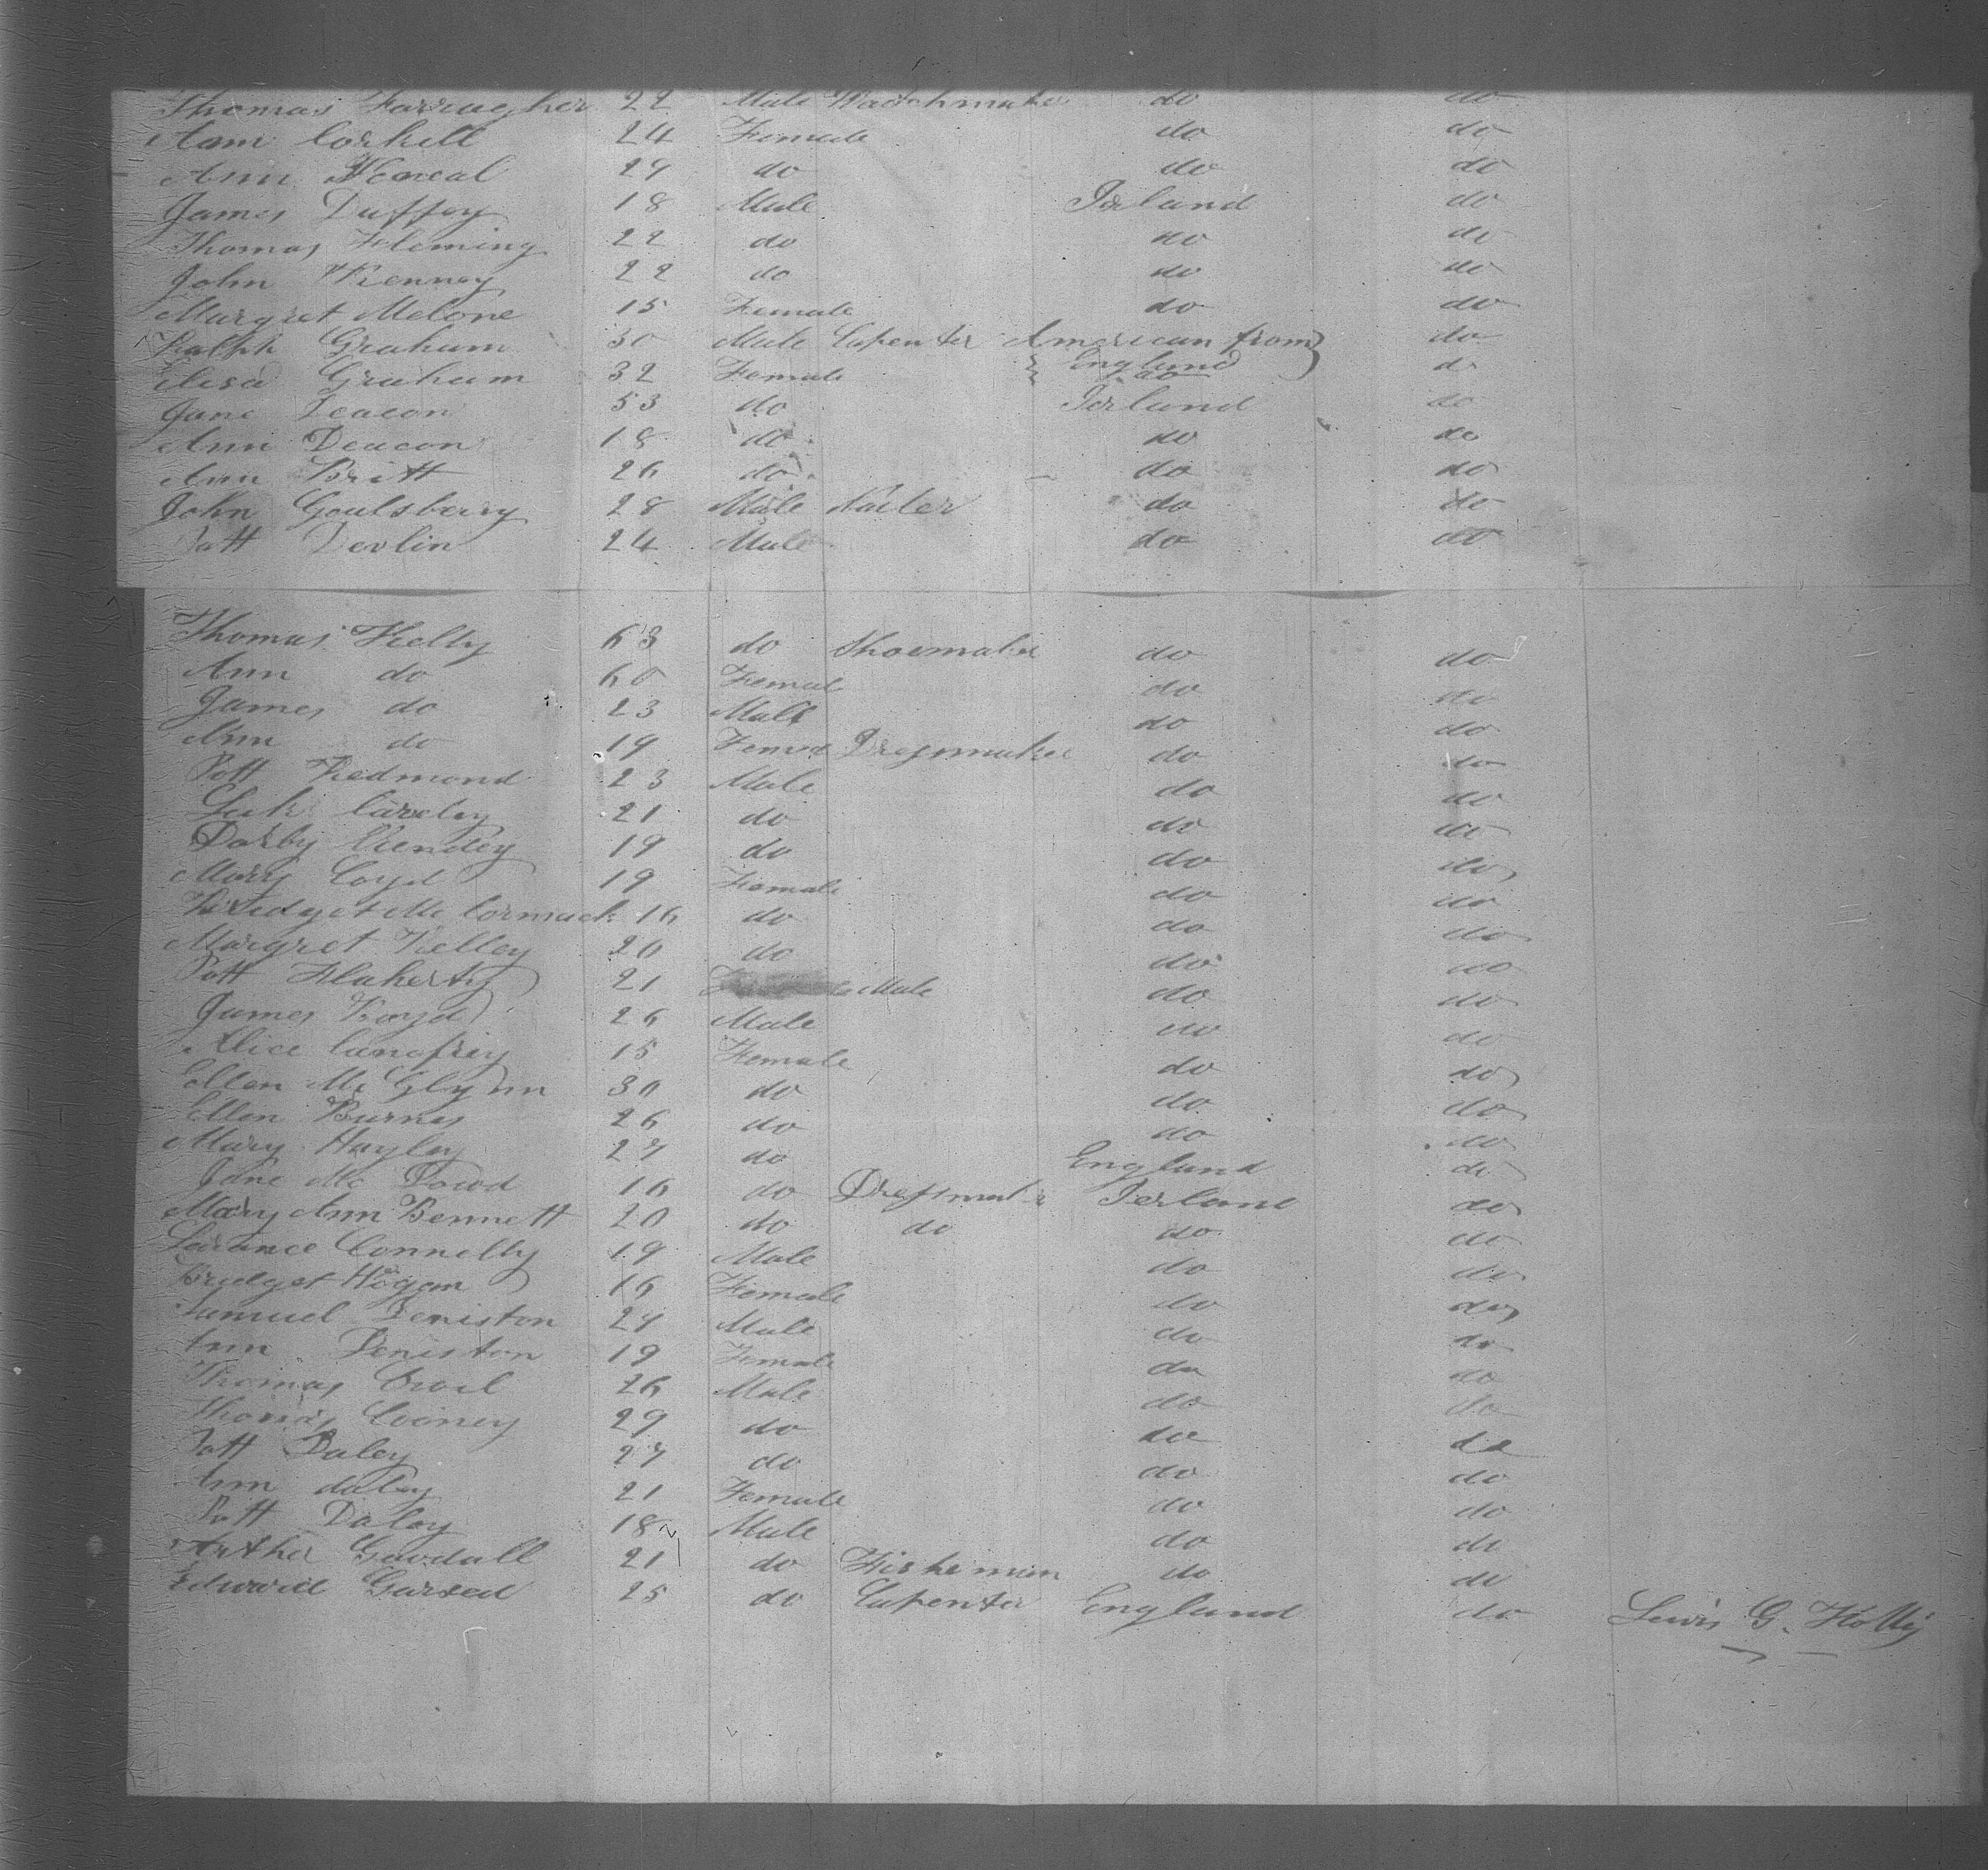 Thomas Farragher 22 Male Watchmaker do do
Ann Corkill 24 Female do do
Ann Keneal 27 do do do
James Duffey 18 Male Ierland do
Thomas Fleming 22 do do do
John Kenney 22 do do do
Margret Melone 15 Female do do
Ralph Graham 30 Male Capenter American from do
England
Graham 32 Female do do
Jane Deacon 53 do Ierland do
Ann Deacon 18 do do do
Ann Britt 26 do do do
John Goulsberry 28 Male Nailer do do
Patt Devlin 24 Male do do
Thomas Kelly 63 do Shoemaker do do
Ann do 60 Female do do
James do 23 Male do do
Ann do 19 Female Dressmaker do do
Patt Redmond 23 Male do do
21 do do do
Darby 19 do do do
Mary Coyd 19 Female do do
Bridget Mc Cormack 16 do do do
Margret Kelley 20 do do do
Patt Flaherty 21 Male do do
James Boyd 26 Male do do
Alice 15 Female do do
Ellen Mc Glynn 30 do do do
Ellen Burnes 26 do do do
Mary Hayley 27 do England do
Jane Mc Dowd 16 do Dressmaker Ierland do
Mary Ann Bennett 20 do do do do
Larance Connelly 19 Male do do
Bridget Hogan 16 Female do do
Samuel Deniston 27 Male do do
Ann Deniston 19 Female do do
Thomas 26 Male do do
Thomas Cooney 29 do do do
Patt Daley 27 do do do
Ann daley 21 Female do do
Patt Daley 18 Male do do
Arther Goodall 21 do Fisheman do do
Edward Garsed 25 do Capenter England do Lewis G.